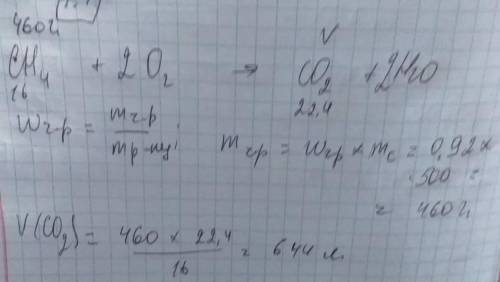 460г
V
CH₄ + 2O₂ → CO₂ + 2H₂O
16 22,4
Wч.р = mч.р / mр-ну; mчр = Wчр × mс = 0,92 ×
500 =
= 460г
V(CO₂) = 460 × 22,4 / 16 = 644 л.